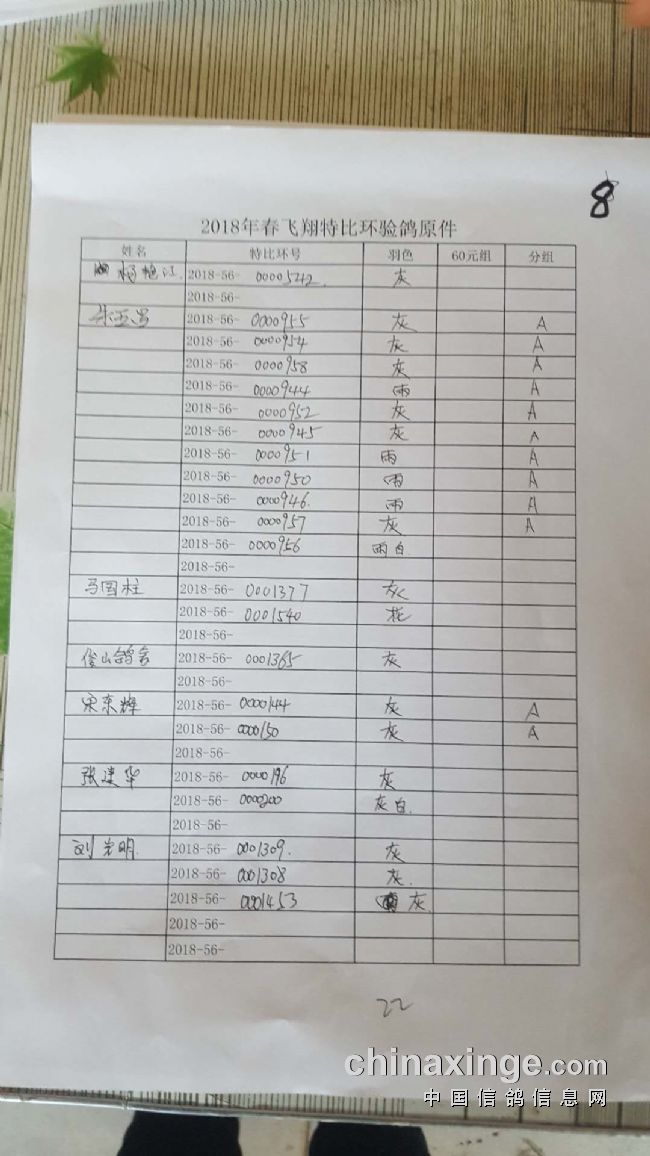 8
2018年春飞翔特比环验鸽原件
姓名 特比环号 羽色 60元组 分组
杨艳江 2018-56- 0000542 灰
2018-56-
朱亚昌 2018-56- 0000955 灰 A
2018-56- 0000954 灰 A
2018-56- 0000958 灰 A
2018-56- 0000944 雨 A
2018-56- 0000952 灰 A
2018-56- 0000945 灰 A
2018-56- 0000951 雨 A
2018-56- 0000950 雨 A
2018-56- 0000946 雨 A
2018-56- 0000957 灰 A
2018-56- 0000956 雨白
2018-56-
马国柱 2018-56- 0001377 灰
2018-56- 0001540 花
2018-56-
山鸽舍 2018-56- 0001365 灰
2018-56-
宋东辉 2018-56- 0000144 灰 A
2018-56- 0000150 灰 A
2018-56-
张建华 2018-56- 0000196 灰
2018-56- 0000200 灰白
2018-56-
刘岩明 2018-56- 0001309 灰
2018-56- 0001308 灰
2018-56- 0001453 灰
2018-56-
2018-56-
22
chinaxinge.com
中国信鸽信息网